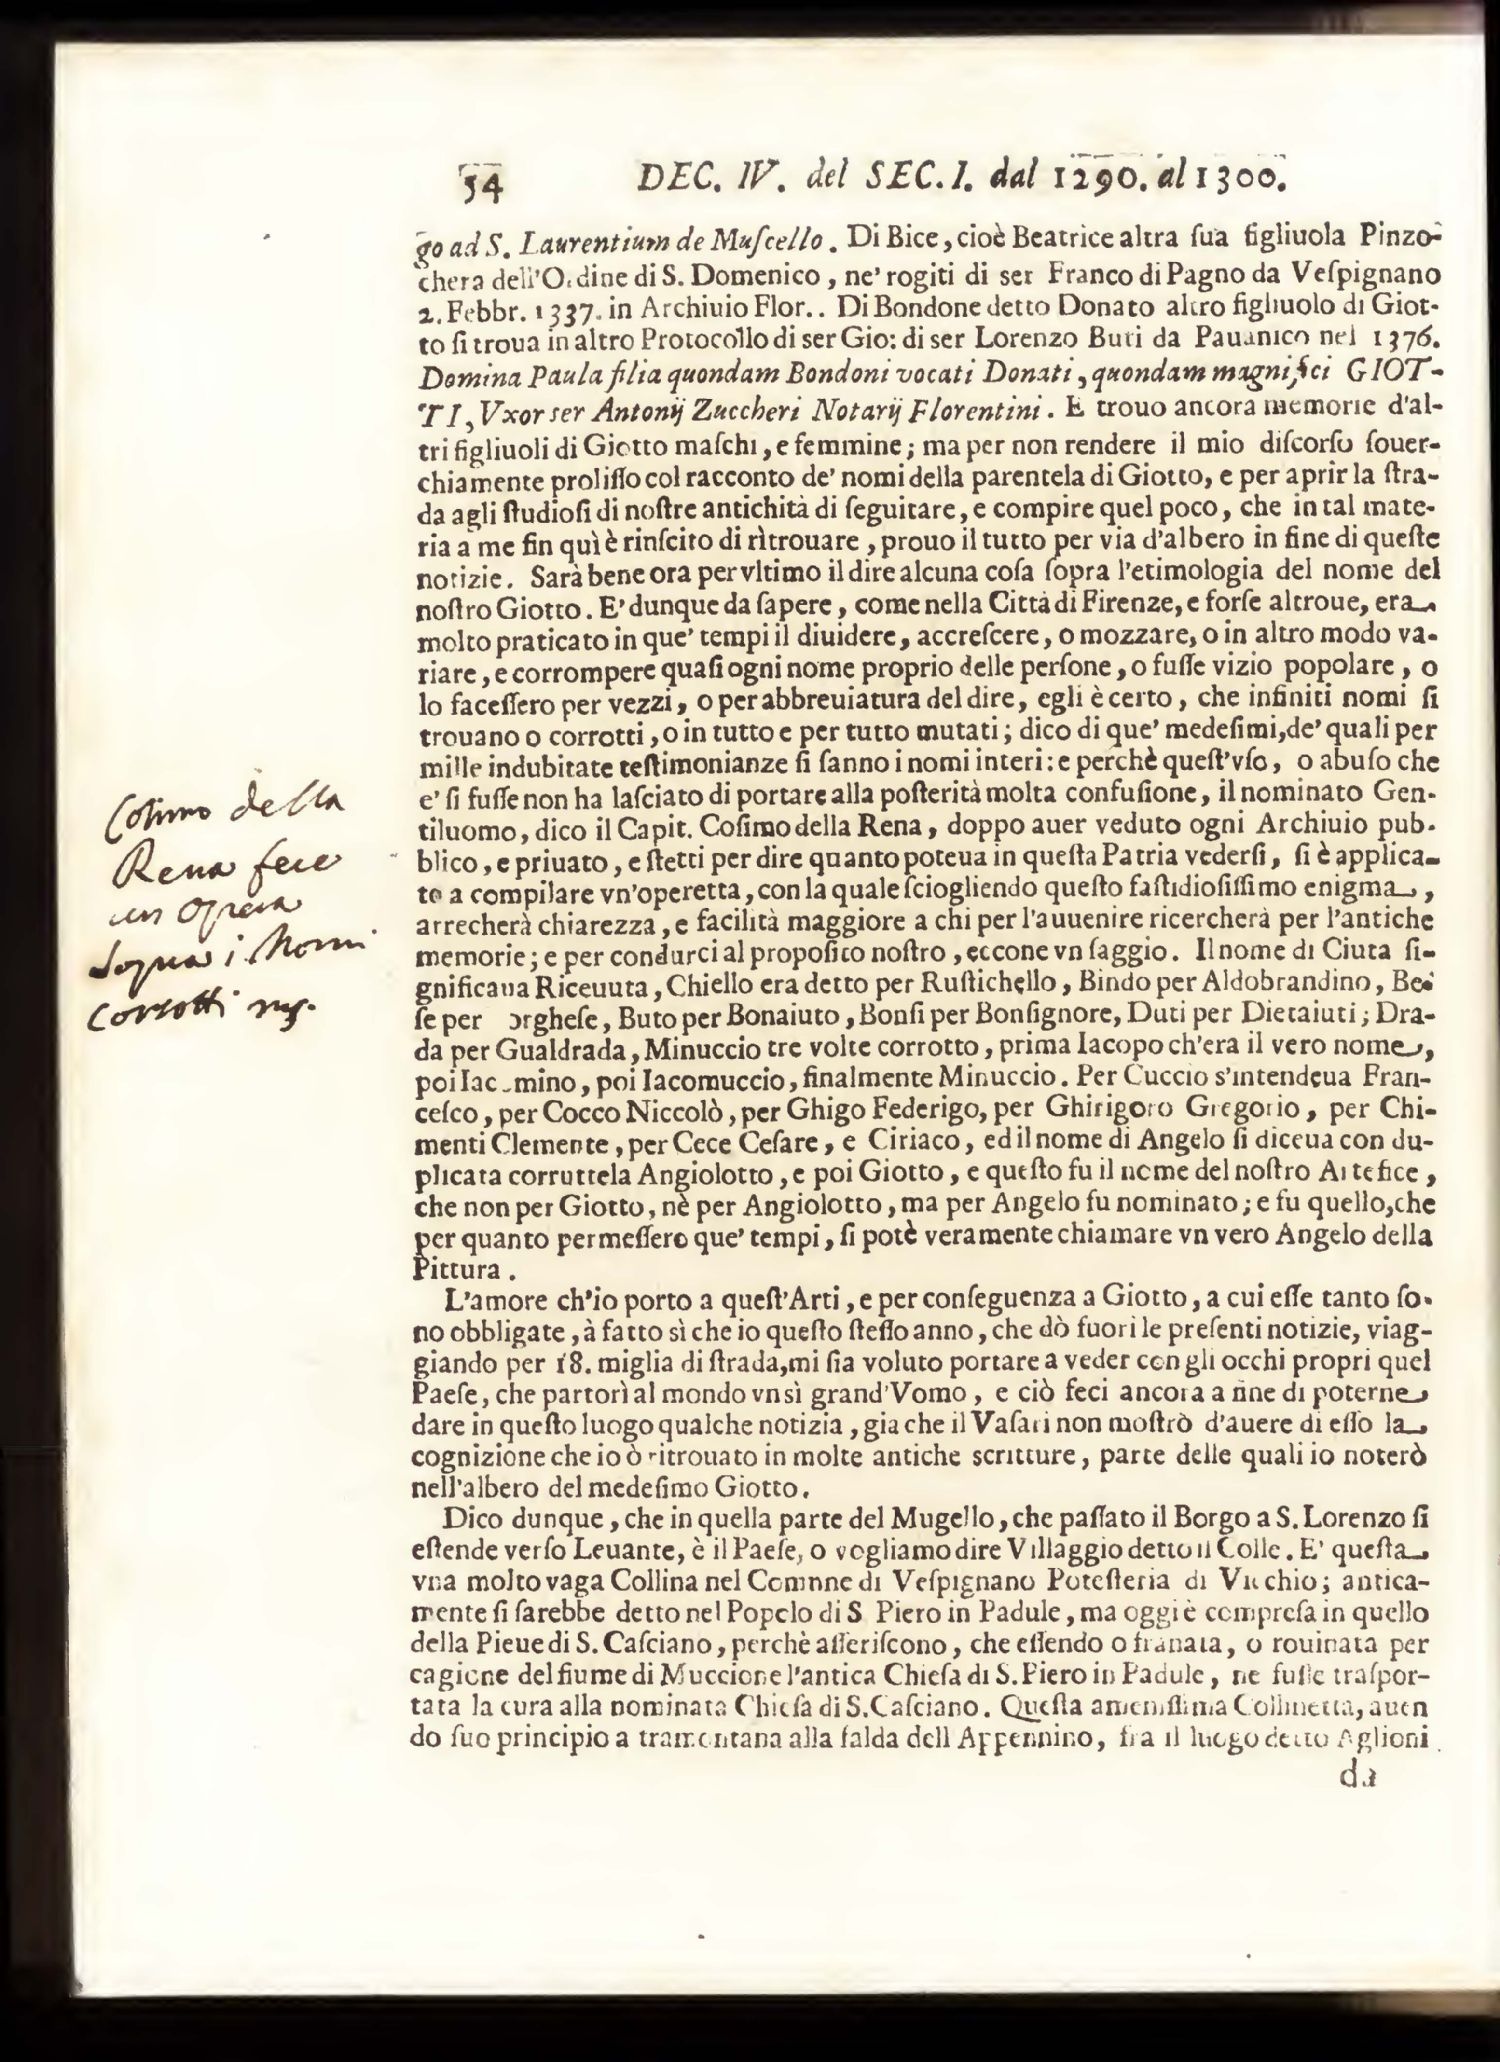 54 DEC. IV. del SEC. I. dal 1290. al 1300.
go ad S. Laurentium de Muſcello. Di Bice, cioè Beatrice altra ſua figliuola Pinzo-
chera dell'Ordine di S. Domenico, ne' rogiti di ser Franco di Pagno da Veſpignano
2. Febbr. 1337. in Archiuio Flor.. Di Bondone detto Donato altro figliuolo di Giot-
to ſi troua in altro Protocollo di ser Gio: di ser Lorenzo Buti da Pauanico nel 1376.
Domina Paula filia quondam Bondoni vocati Donati, quondam magnifici GIOT-
TI, Vxor ser Antonij Zuccheri Notarij Florentini. E trouo ancora memorie d'al-
tri figliuoli di Giotto maſchi, e femmine; ma per non rendere il mio diſcorſo ſouer-
chiamente proliſſo col racconto de' nomi della parentela di Giotto, e per aprir la ſtra-
da agli ſtudioſi di noſtre antichità di ſeguitare, e compire quel poco, che in tal mate-
ria a me fin quì è rinſcito di rìtrouare, prouo il tutto per via d'albero in fine di queſte
notizie. Sarà bene ora per vltimo il dire alcuna coſa ſopra l'etimologia del nome del
noſtro Giotto. E' dunque da ſapere, come nella Città di Firenze, e forſe altroue, era
molto praticato in que' tempi il diuidere, accreſcere, o mozzare, o in altro modo va-
riare, e corrompere quaſi ogni nome proprio delle perſone, o fuſſe vizio popolare, o
lo faceſſero per vezzi, o per abbreuiatura del dire, egli è certo, che infiniti nomi ſi
trouano o corrotti, o in tutto e per tutto mutati; dico di que' medeſimi, de' quali per
mille indubitate teſtimonianze ſi ſanno i nomi interi: e perchè queſt'vſo, o abuſo che
e' ſi fuſſe non ha laſciato di portare alla poſterità molta confuſione, il nominato Gen-
tiluomo, dico il Capit. Coſimo della Rena, doppo auer veduto ogni Archiuio pub-
blico, e priuato, e ſtetti per dire quanto poteua in queſta Patria vederſi, ſi è applica-
to a compilare vn'operetta, con la quale ſciogliendo queſto faſtidioſiſſimo enigma,
arrecherà chiarezza, e facilità maggiore a chi per l'auuenire ricercherà per l'antiche
memorie; e per condurci al propoſito noſtro, eccone vn ſaggio. Il nome di Ciuta ſi-
gnificaua Riceuuta, Chiello era detto per Ruſtichello, Bindo per Aldobrandino, Be
ſe per orgheſe, Buto per Bonaiuto, Bonſi per Bonſignore, Duti per Dietaiuti; Dra-
da per Gualdrada, Minuccio tre volte corrotto, prima Iacopo ch'era il vero nome,
poi Iac mino, poi Iacomuccio, finalmente Minuccio. Per Cuccio s'intendeua Fran-
ceſco, per Cocco Niccolò, per Ghigo Federigo, per Ghirigoro Gregorio, per Chi-
menti Clemente, per Cece Ceſare, e Ciriaco, ed il nome di Angelo ſi diceua con du-
plicata corruttela Angiolotto, e poi Giotto, e queſto fu il nome del noſtro Artefice,
che non per Giotto, nè per Angiolotto, ma per Angelo fu nominato; e fu quello, che
per quanto permeſſero que' tempi, ſi potè veramente chiamare vn vero Angelo della
Pittura.
L'amore ch'io porto a queſt'Arti, e per conſeguenza a Giotto, a cui eſſe tanto ſo-
no obbligate, à fatto sì che io queſto ſteſſo anno, che dò fuori le preſenti notizie, viag-
giando per 18. miglia di ſtrada, mi ſia voluto portare a veder con gli occhi propri quel
Paeſe, che partorì al mondo vn sì grand'Vomo, e ciò feci ancora a fine di poterne
dare in queſto luogo qualche notizia, gia che il Vaſari non moſtrò d'auere di eſſo la
cognizione che io ò ritrouato in molte antiche scritture, parte delle quali io noterò
nell'albero del medeſimo Giotto.
Dico dunque, che in quella parte del Mugello, che paſſato il Borgo a S. Lorenzo ſi
eſtende verſo Leuante, è il Paeſe, o vogliamo dire Villaggio detto il Colle. E' queſta
vna molto vaga Collina nel Comnne di Veſpignano Poteſteria di Vicchio; antica-
mente ſi ſarebbe detto nel Popolo di S Piero in Padule, ma oggi è compreſa in quello
della Pieue di S. Caſciano, perchè aſſeriſcono, che eſſendo o franata, o rouinata per
cagione del fiume di Muccione l'antica Chieſa di S. Piero in Padule, ne fuſſe traſpor-
tata la cura alla nominata Chieſa di S. Caſciano. Queſta ameniſſima Collinetta, auen
do ſuo principio a tramontana alla falda dell Appennino, fra il luogo detto Aglioni
da
Cosimo della
Rena fece
un opera
sopra i Nomi
corrotti